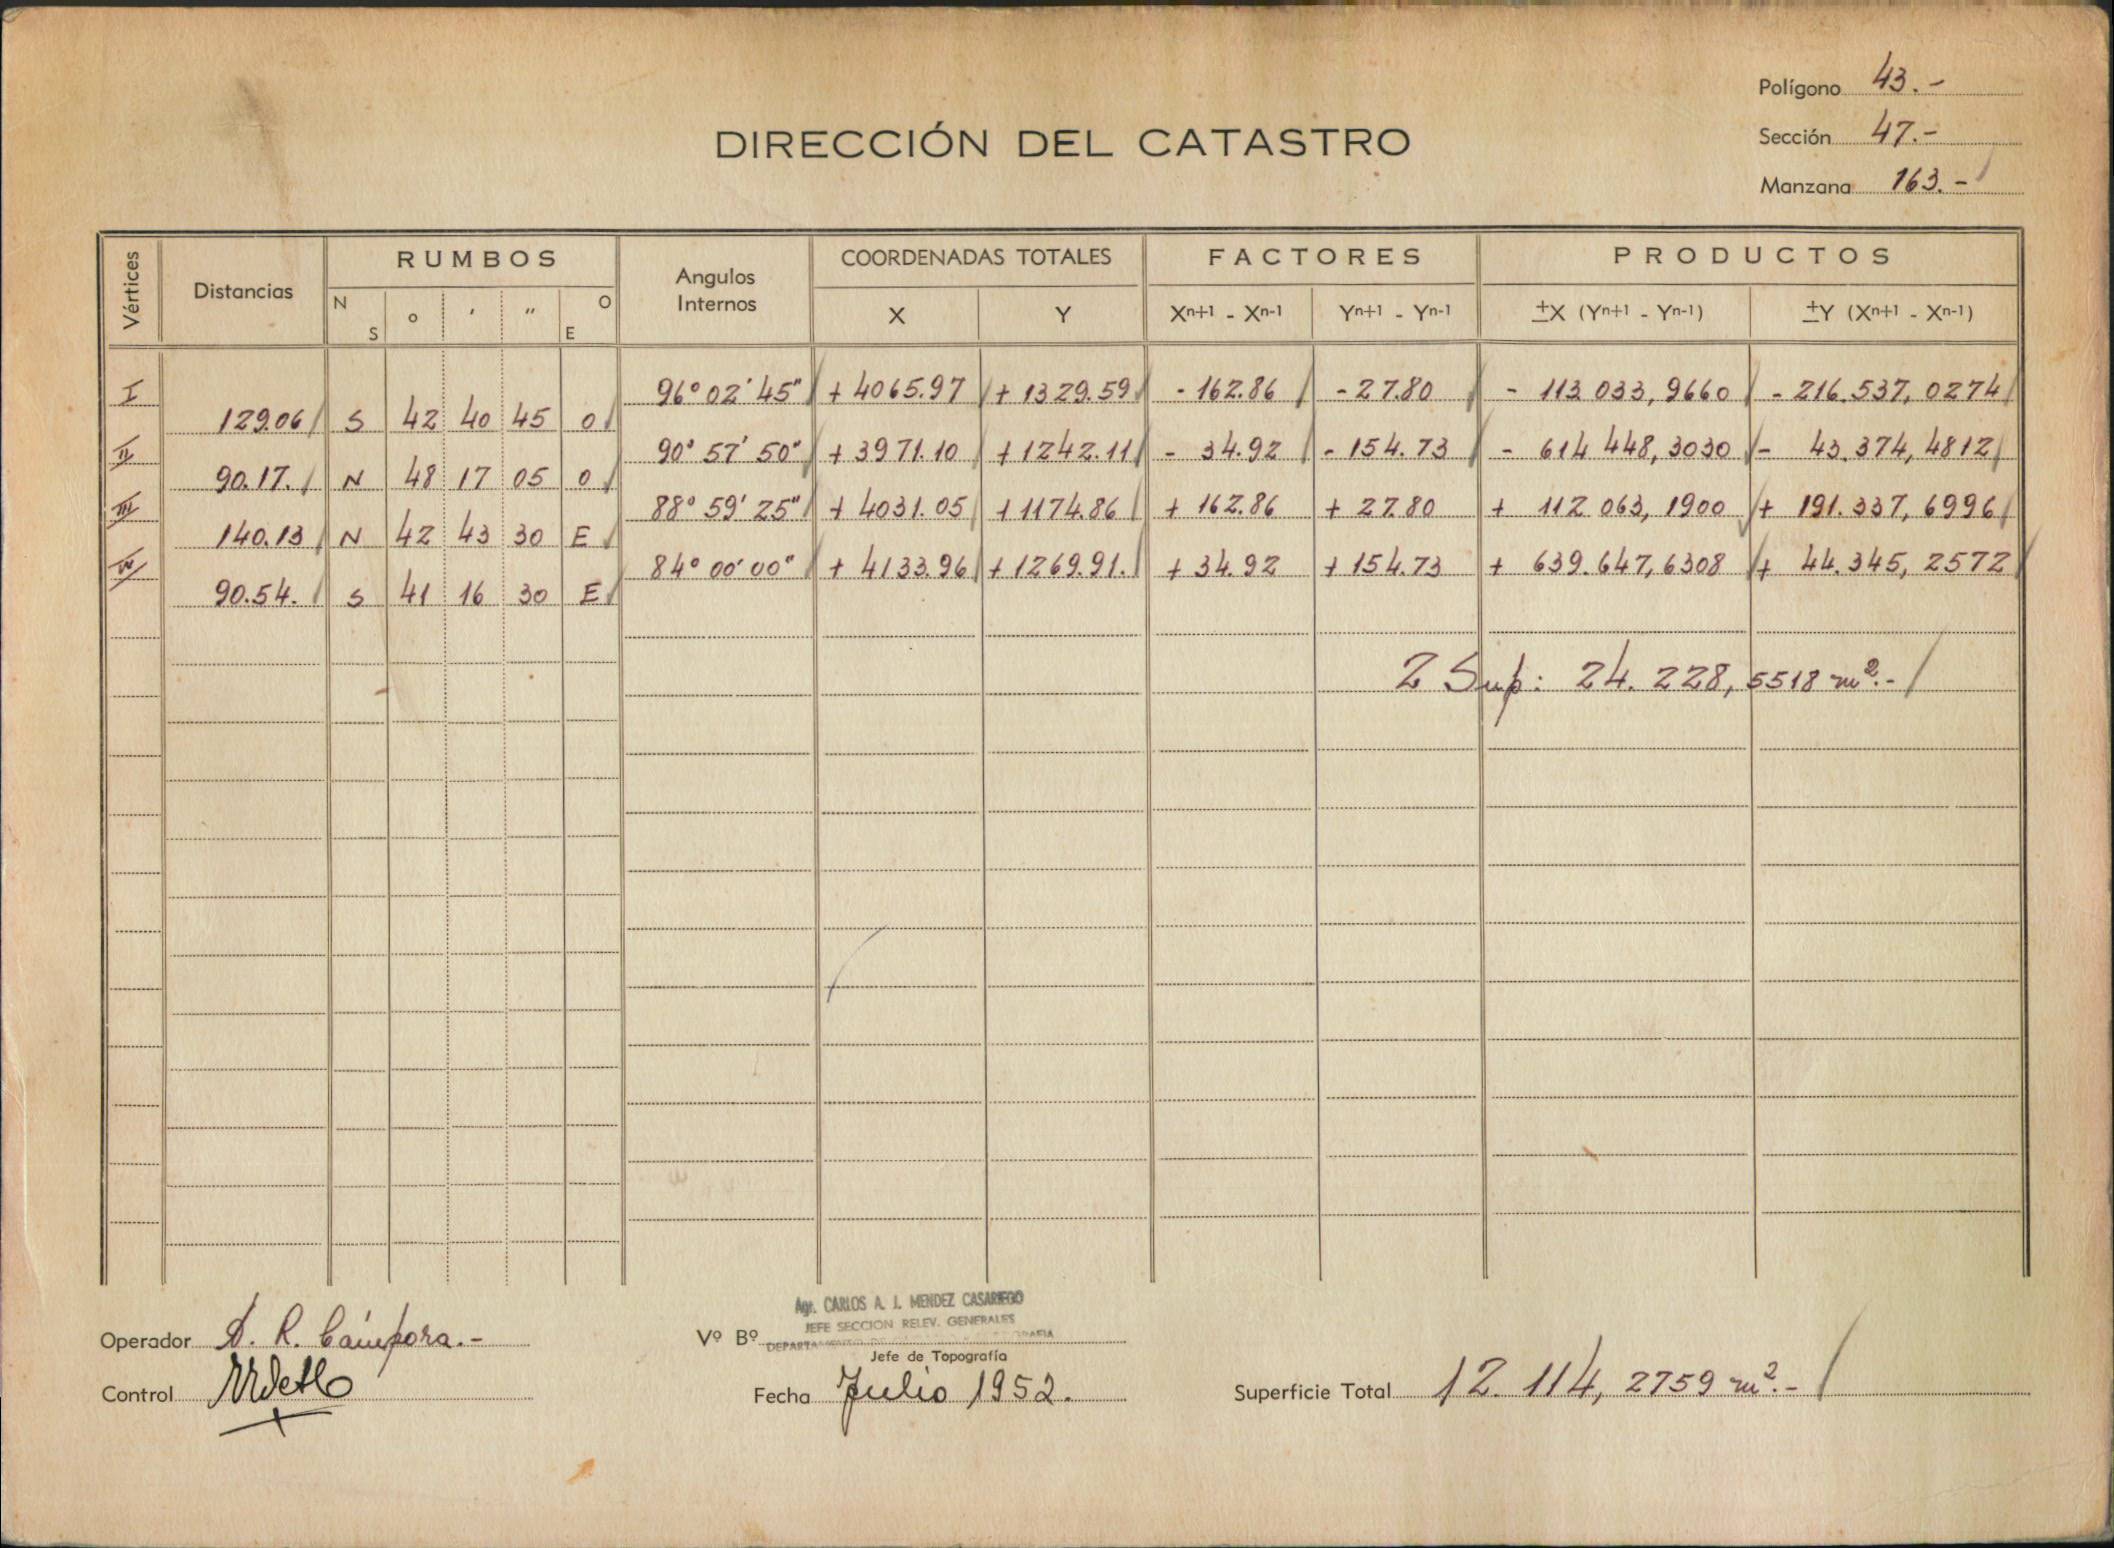 Polígono 43.-
Sección 47.-
Manzana 163.-
DIRECCIÓN DEL CATASTRO
Vértices Distancias RUMBOS Angulos Internos COORDENADAS TOTALES FACTORES PRODUCTOS
N S o ' " O E X Y Xn+1 - Xn-1 Yn+1 - Yn-1 ±X (Yn+1 - Yn-1) ±Y (Xn+1 - Xn-1)
I 96° 02' 45" + 4065.97 + 1329.59 - 162.86 - 27.80 - 113.033,9660 - 216.537,0274
129.06 S 42 40 45 O
II 90° 57' 50" + 3971.10 + 1242.11 - 34.92 - 154.73 - 614 448,3030 - 43.374,4812
90.17. N 48 17 05 O
III 88° 59' 25" + 4031.05 + 1174.86 + 162.86 + 27.80 + 112 063,1900 + 191.337,6996
140.13 N 42 43 30 E
IV 84° 00' 00" + 4133.96 + 1269.91. + 34.92 + 154.73 + 639.647,6308 + 44.345,2572
90.54. S 41 16 30 E
2 Sup: 24.228,5518 m².-
Agr. CARLOS A. J. MENDEZ CASARIEGO
JEFE SECCION RELEV. GENERALES
Operador D. R. Cámpora.-
Vº Bº
Jefe de Topografía
Control
Fecha Julio 1952.
Superficie Total 12.114,2759 m².-